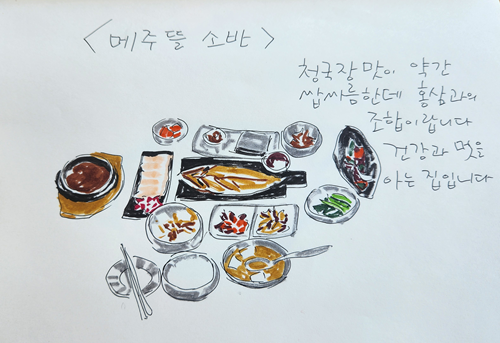 <메주뜰 소반>
청국장 맛이 약간
쌉싸름한데 홍삼과의
조합이랍니다
건강과 멋을
아는 집입니다